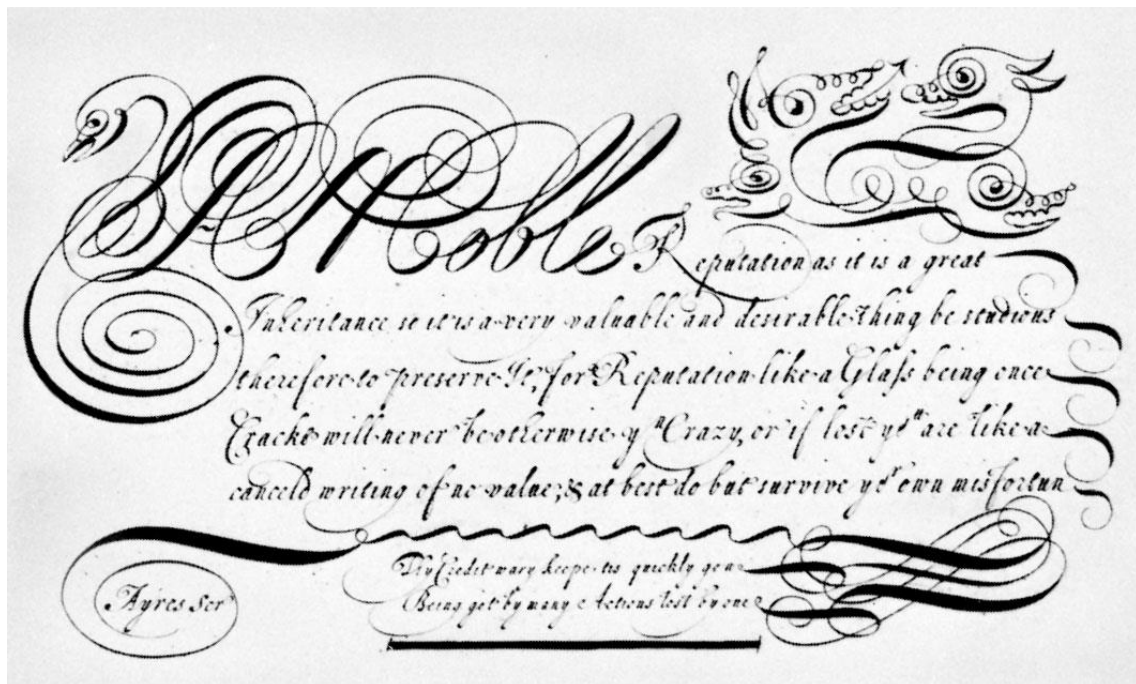 A Noble Reputation as it is a great
Inheritance so it is a very valuable and desirable thing be studious
therefore to preserve It, for Reputation like a Glaſs being once
Crackt will never be otherwise yn Crazy, or if lost yn are like a
canceld writing of no value, & at best do but survive yr own misfortun
Thy Credit wary keepe, tis quickly gon
Being got by many Actions lost by one
Ayres Scr